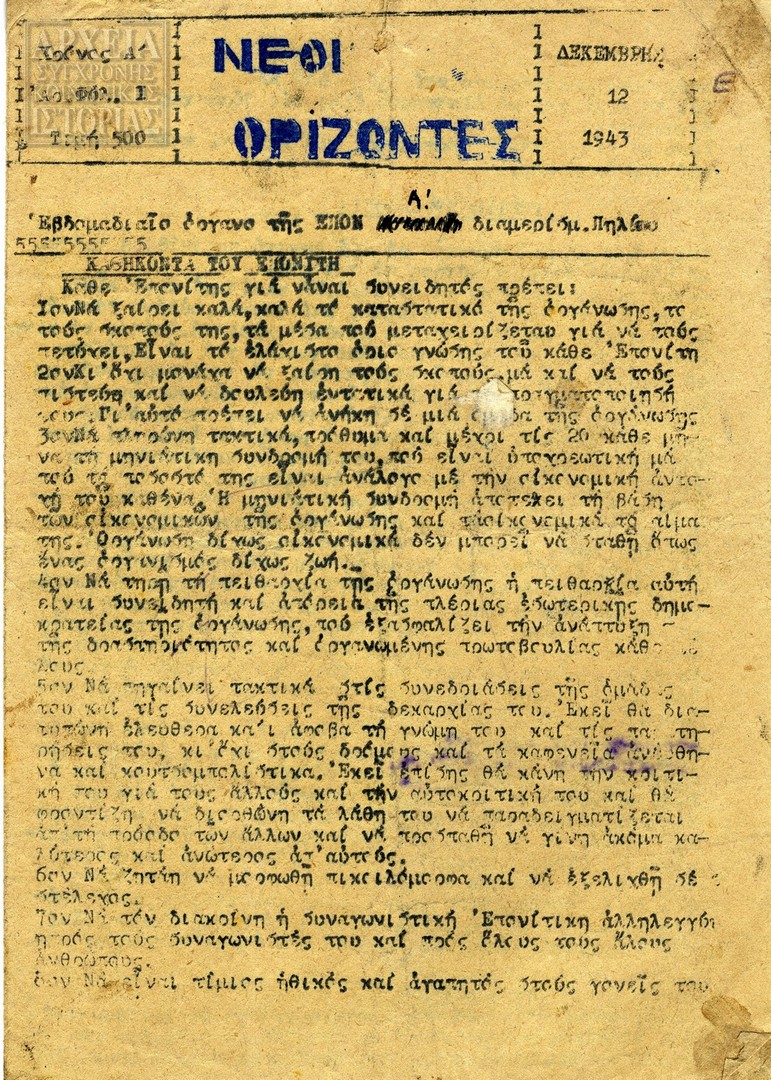 ΑΡΧΕΙΑ
ΣΥΓΧΡΟΝΗΣ
ΚΟΙΝΩΝΙΚΗΣ
ΙΣΤΟΡΙΑΣ
Χρόνος Α'
Αρ.Φύλ. Ι
Τιμή 500
ΝΕΟΙ
ΟΡΙΖΟΝΤΕΣ
ΔΕΚΕΜΒΡΗΣ
12
1943
Α!
Ἑβδομαδιαῖο ὄργανο τῆς ΕΠΟΝ διαμερίσμ. Πηλίου
ΚΑΘΗΚΟΝΤΑ ΤΟΥ ΕΠΟΝΙΤΗ
Κάθε Ἐπονίτης γιά νἆναι συνειδητός πρέπει:
ΙονΝά ξαίρει καλά,καλά τό καταστατικό τῆς ὀργάνωσης,το
τούς σκοπούς της,τά μέσα πού μεταχειρίζεται γιά νά τούς
πετύχει,Εἶναι τό ἐλάχιστο ὅριο γνώσης τοῦ κάθε Ἐπονίτη
2ονΚι ὄχι μονάχα νά ξαίρη τούς σκοπούς μά καί νά τούς
πιστεύη καί νά δουλεύη ἐντατικά γιά πραγματοποίησή
τους.Γι'αὐτό πρέπει νά ἀνήκη σέ μιά ὁμάδα τῆς ὀργάνωσης
3ονΝά πληρώνη τακτικά,πρόθυμα καί μέχρι τίς 20 κάθε μή-
να τή μηνιάτικη συνδρομή του,πού εἶναι ὑποχρεωτική μά
πού τό ποσοστό της εἶναι ἀνάλογο μέ τήν οἰκονομική ἀντο-
χή τοῦ καθένα.Ἡ μηνιάτική συνδρομή ἀποτελεῖ τή βάση
τῶν οἰκονομικῶν τῆς ὀργάνωσης καί τάοἰκονομικά τό αἷμα
της.Ὀργάνωση δίχως οἰκονομικά δέν μπορεῖ νά σταθῆ ὅπως
ἕνας ὀργανισμός δίχως ζωή.
4ον Νά τηρῆ τή πειθαρχία της ὀργάνωσης ἡ πειθαρχία αὐτή
εἶναι συνειδητή καί ἀπόρεια τῆς πλέριας ἐσωτερικης δημο-
κρατείας της ὀργάνωσης,πού ἐξασφαλίζει τήν ἀνάπτυξη -
τῆς δραστηριότητος καί ὀργανωμένης πρωτοβουλίας κάθε μέ
λους.
5ον Νά πηγαίνει τακτικά στίς συνεδριάσεις τῆς ὁμάδας
του καί τίς συνελεύσεις τῆς δεκαρχίας του.Ἐκεῖ θά δια-
τυπώνη ἐλεύθερα κα'ι ἄφοβα τή γνώμη του καί τίς παρατη
ρήσεις του, κι'ὄχι στούς δρόμους καί τά καφενεῖα ἀνεύθη-
να καί κουτσομπολίστικα.Ἐκεῖ ἐπίσης θά κάνη τήν κριτι-
κή του γιά τούς ἄλλούς καί τήν αὐτοκριτική του καί θά
φροντίζη νά διορθώνη τά λάθη του νά παραδειγματίζεται
ἀπ'τή πρόοδο των ἄλλων καί νά προσπαθῆ νά γίνη ἀκόμα κα-
λύτερος καί ἀνώτερος ἀπ'αὐτούς.
6ον Νά ζητάη νά μορφωθῆ πικοιλόμορφα καί νά ἐξελιχθῆ σέ
στέλεχος.
7ον Νά τόν διακρίνη ἡ συναγωνιστική Ἐπονίτικη ἀλληλεγγύη
ηπρός τούς συναγωνιστές του καί πρός ὅλους τούς ἄλους
ἀνθρώπους.
8ον Νά εἶναι τίμιος ἠθικός καί ἀγαπητός στούς γονεῖς του